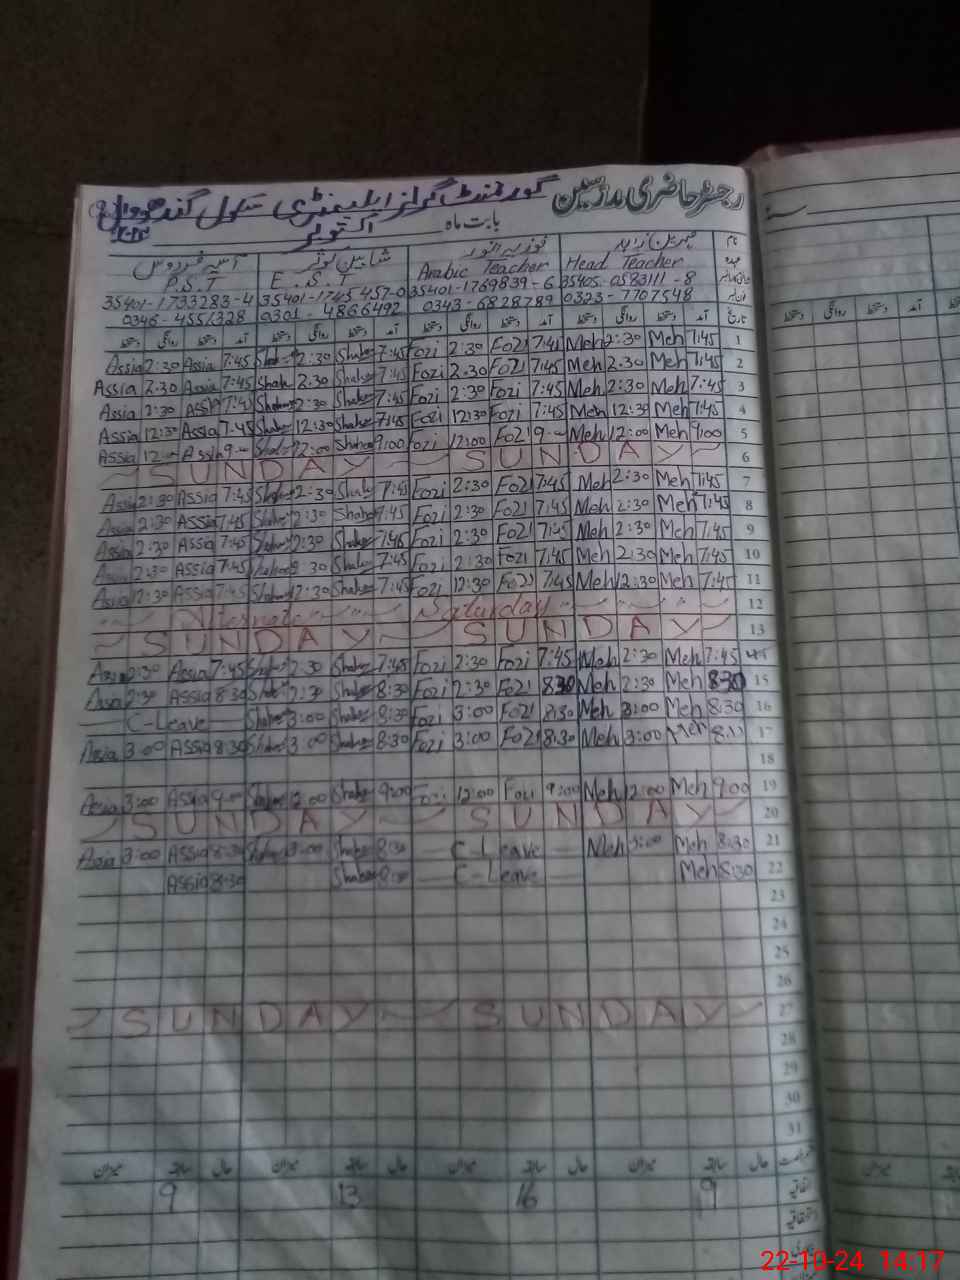 رجسٹر حاضری مدرسین گورنمنٹ گرلز ایلیمنٹری سکول
بابت ماہ اکتوبر
نام مہرین زاہد فوزیہ انور شاہین کوثر آسیہ فردوس
عہدہ Head Teacher Arabic Teacher E.S.T P.S.T
35405-0583111-8 35401-1769839-6 35401-1745457-0 35401-1733283-4
0323-7707548 0343-6828789 0301-4866492 0346-4551328
تاریخ آمد دستخط روانگی دستخط آمد دستخط روانگی دستخط آمد دستخط روانگی دستخط آمد دستخط روانگی دستخط
Assia 2:30 Assia 7:45 Shah 2:30 Shahe 7:45 Fozi 2:30 Fozi 7:45 Meh 2:30 Meh 7:45 1
Assia 2:30 Assia 7:45 Shah 2:30 Shahe 7:45 Fozi 2:30 Fozi 7:45 Meh 2:30 Meh 7:45 2
Assia 2:30 Assia 7:45 Shahe 2:30 Shahe 7:45 Fozi 2:30 Fozi 7:45 Meh 2:30 Meh 7:45 3
Assia 12:30 Assia 7:45 Shahe 12:30 Shahe 7:45 Fozi 12:30 Fozi 7:45 Meh 12:30 Meh 7:45 4
Assia 12 Assia 9 Shahe 12:00 Shahe 9:00 Fozi 12:00 Fozi 9 Meh 12:00 Meh 9:00 5
SUNDAY SUNDAY 6
Assia 2:30 Assia 7:45 Shahe 2:30 Shahe 7:45 Fozi 2:30 Fozi 7:45 Meh 2:30 Meh 7:45 7
Assia 2:30 Assia 7:45 Shahe 2:30 Shahe 7:45 Fozi 2:30 Fozi 7:45 Meh 2:30 Meh 7:45 8
Assia 2:30 Assia 7:45 Shahe 2:30 Shahe 7:45 Fozi 2:30 Fozi 7:45 Meh 2:30 Meh 7:45 9
Assia 2:30 Assia 7:45 Shahe 2:30 Shahe 7:45 Fozi 2:30 Fozi 7:45 Meh 2:30 Meh 7:45 10
Assia 12:30 Assia 7:45 Shahe 12:30 Shahe 7:45 Fozi 12:30 Fozi 7:45 Meh 12:30 Meh 7:45 11
Alternate Saturday 12
SUNDAY SUNDAY 13
Assia 2:30 Assia 7:45 Shahe 2:30 Shahe 7:45 Fozi 2:30 Fozi 7:45 Meh 2:30 Meh 7:45
Assia 2:30 Assia 8:30 Shahe 2:30 Shahe 8:30 Fozi 2:30 Fozi 8:30 Meh 2:30 Meh 8:30 15
C-Leave Shahe 3:00 Shahe 8:30 Fozi 3:00 Fozi 8:30 Meh 3:00 Meh 8:30 16
Assia 3:00 Assia 8:30 Shahe 3:00 Shahe 8:30 Fozi 3:00 Fozi 8:30 Meh 3:00 Meh 17
18
Assia 3:00 Assia 9:00 Shahe 12:00 Shahe 9:00 Fozi 12:00 Fozi 9:00 Meh 12:00 Meh 9:00 19
SUNDAY SUNDAY 20
Assia 3:00 Assia 8:30 Shahe 3:00 Shahe 8:30 C-Leave Meh 3:00 Meh 8:30 21
Assia 8:30 Shahe 8:30 C-Leave Meh 8:30 22
23
24
25
26
SUNDAY SUNDAY 27
28
29
30
31
حال سابقہ میزان حال سابقہ میزان حال سابقہ میزان حال سابقہ میزان
اتفاقیہ
9 13 16 19
22-10-24 14:17